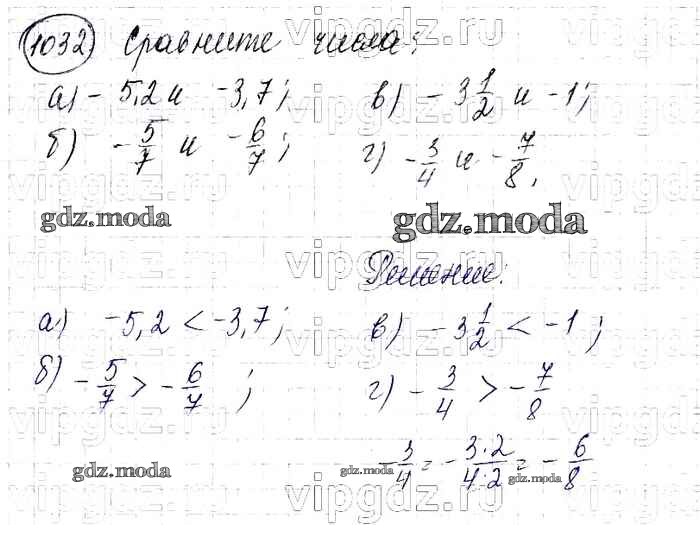 1032 Сравните числа:
а) - 5,2 и -3,7; в) - 3 1/2 и -1;
б) - 5/7 и - 6/7; г) - 3/4 и - 7/8.
gdz.moda gdz.moda
Решение:
а) -5,2 < -3,7; в) -3 1/2 < -1;
б) - 5/7 > - 6/7; г) - 3/4 > - 7/8
- 3/4 = - 3·2/4·2 = - 6/8
gdz.moda gdz.moda gdz.moda
vipgdz.ru